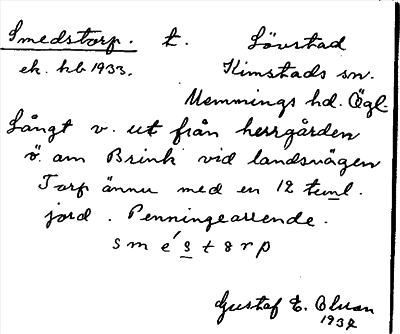 Smedstorp. t. Lövstad
ek. kb 1933. Kimstads sn.
Memmings hd. Ögl.
Långt v. ut från herrgården
ö. om Brink vid landsvägen
Torp ännu med en 12 tunnl.
jord. Penningearrende.
s m é s t o r p
Gustaf E. Olsson
1934